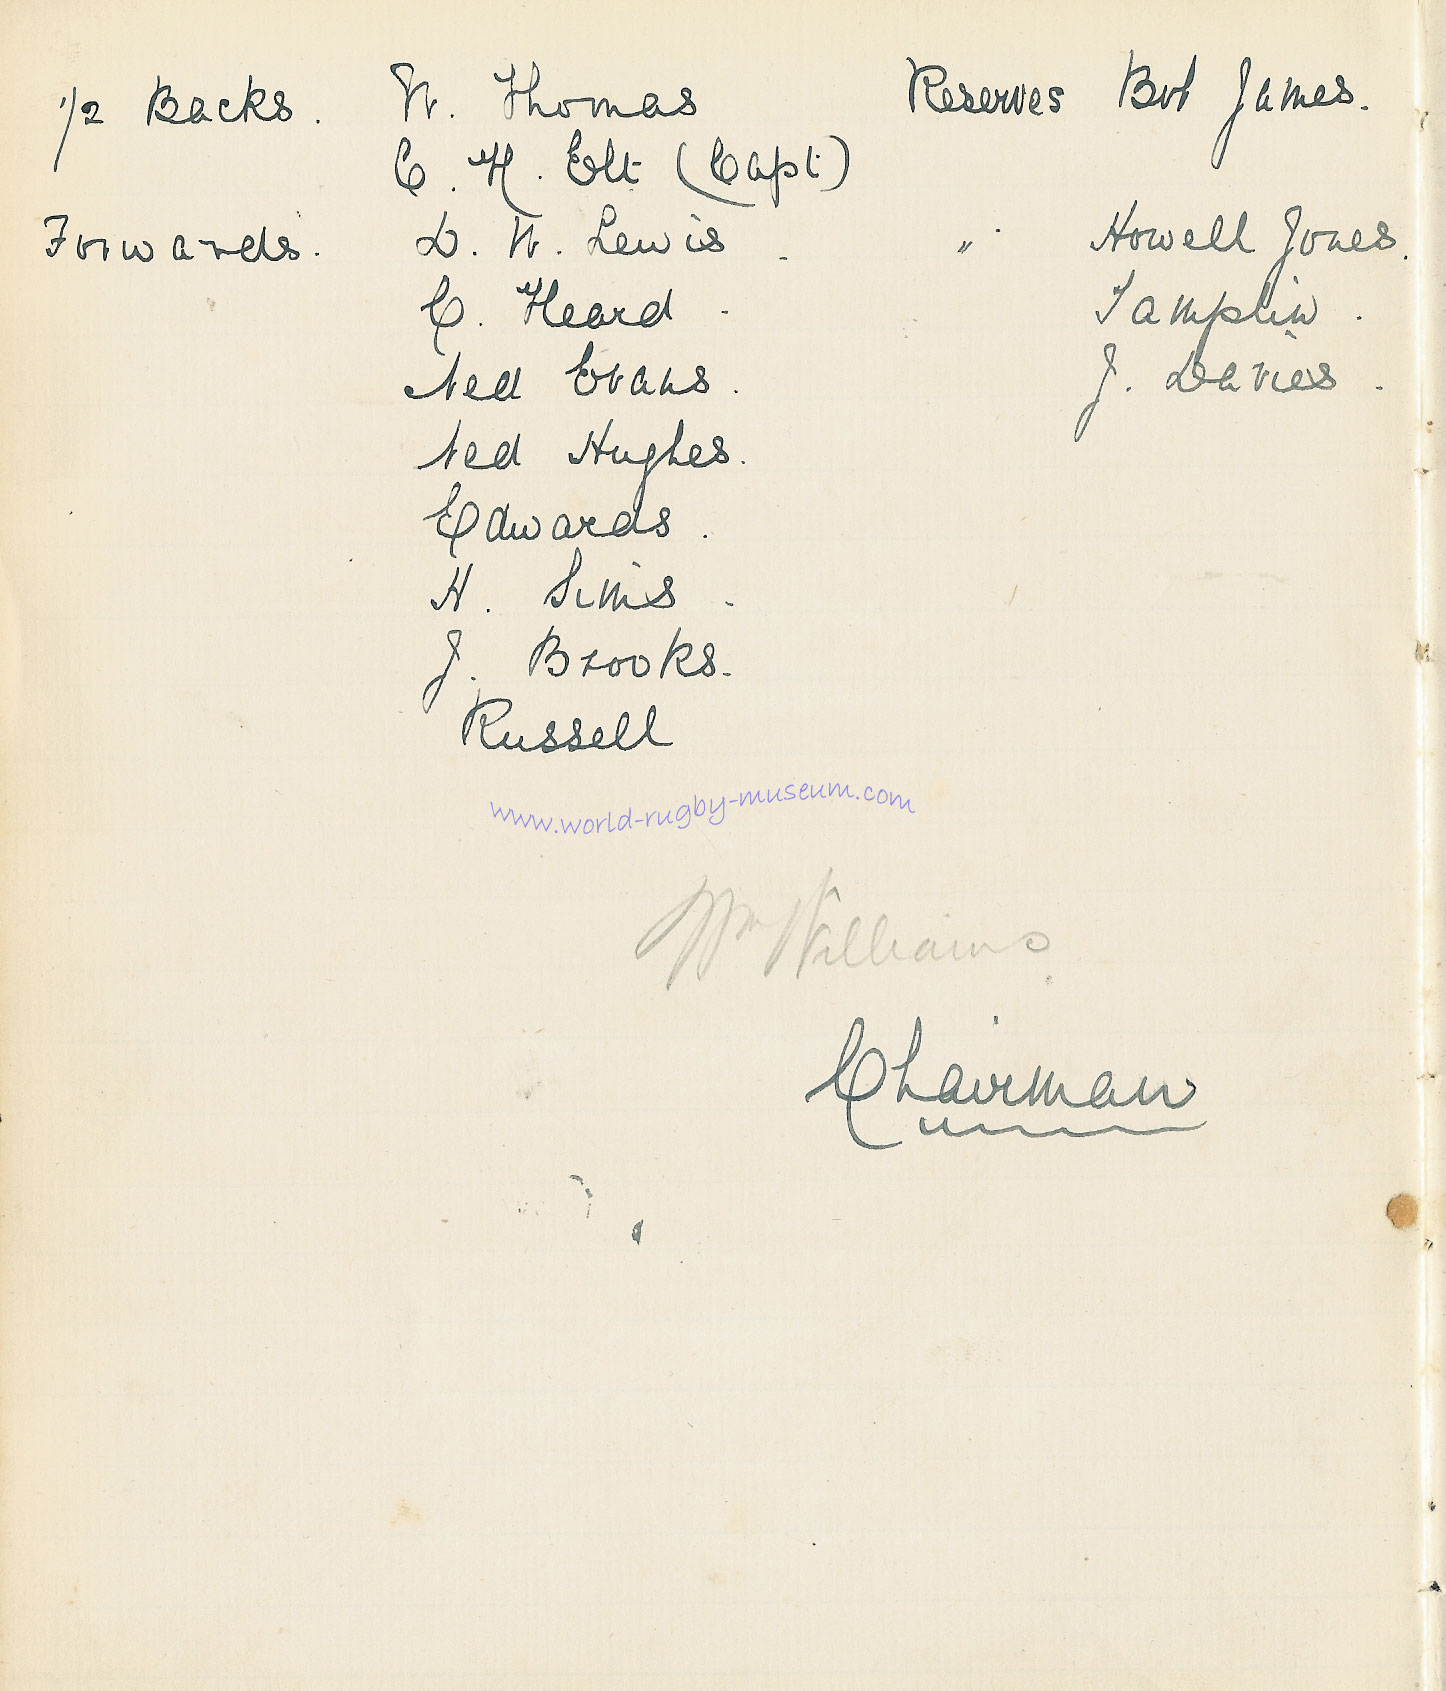 1/2 Backs. W. Thomas Reserves Bob James.
C. H. Elt (Capt)
Forwards. D. W. Lewis. " Howell Jones.
C. Heard. Tamplin.
Ned Evans. J. Davies.
Ned Hughes.
Edwards.
H. Sims.
J. Brooks.
Russell
www.world-rugby-museum.com
Wm Williams
Chairman